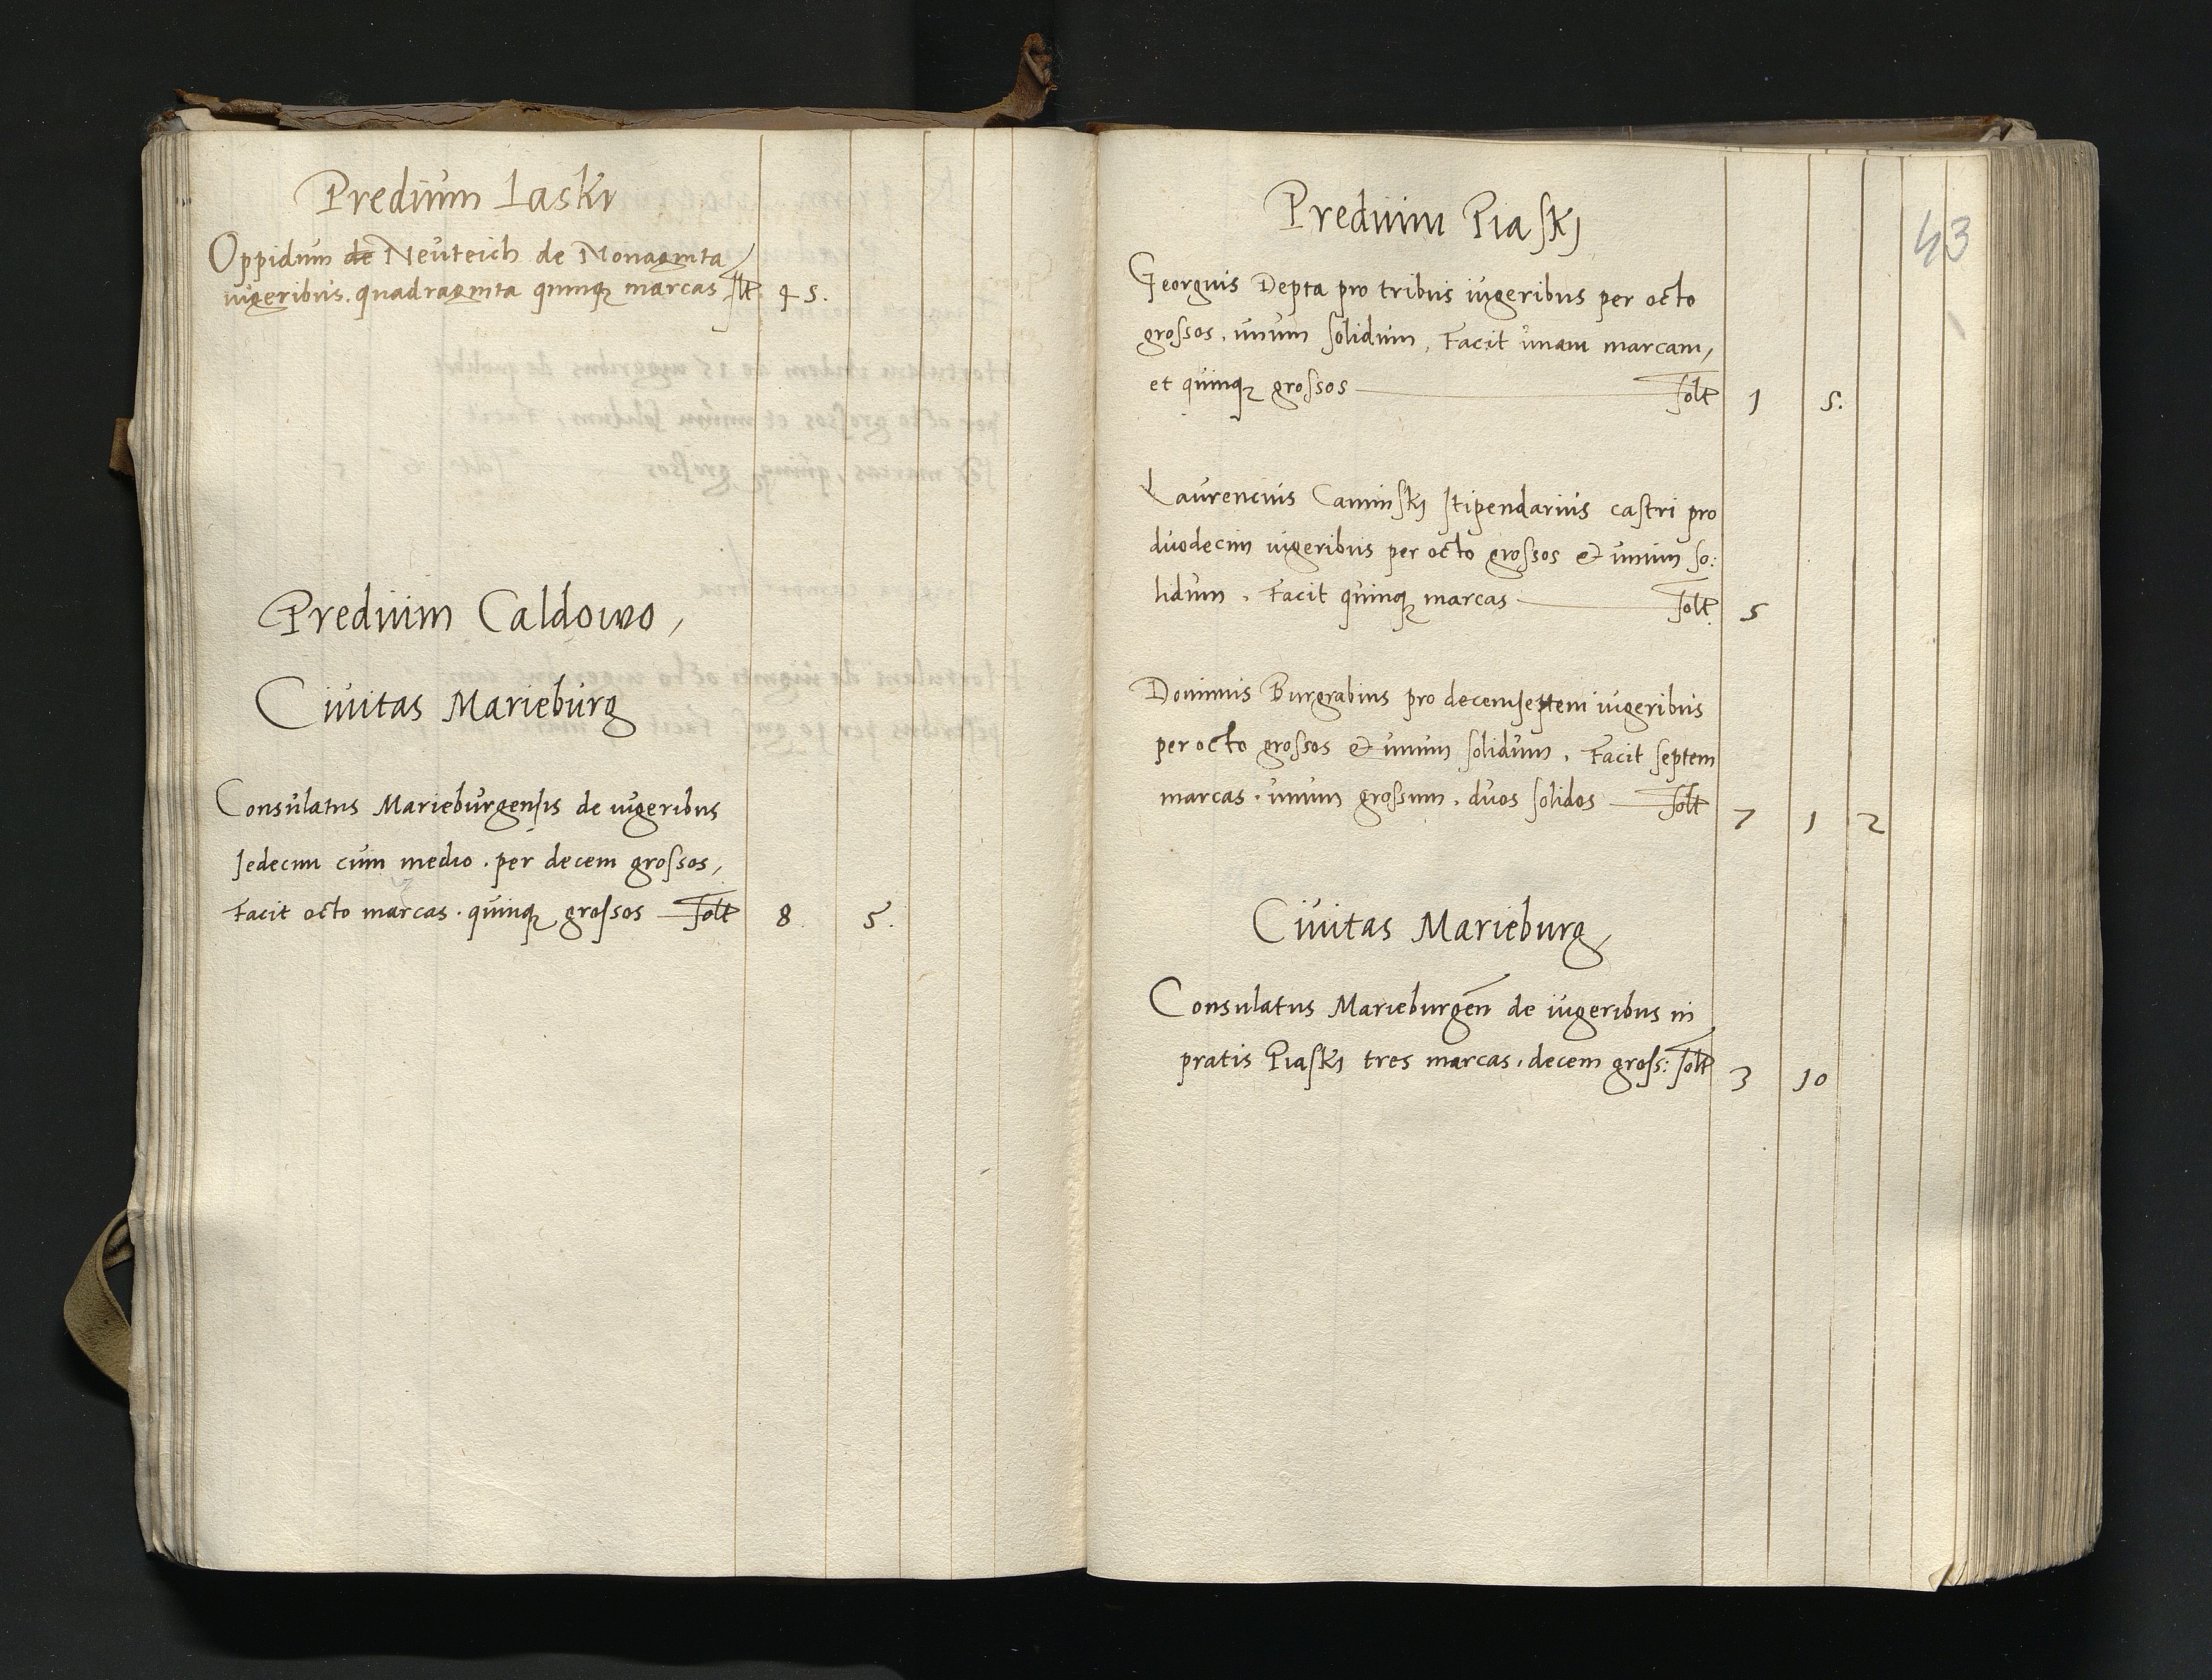 Predium Laski
Oppidum de Neuteich de Nonaginta
iugeribus. quadraginta quinq marcas Solt 45.
Predium Caldowo,
Ciuitas Marieburg
Consulatus Marieburgensis de iugeribus
sedecim cum medio. per decem grossos,
Facit octo marcas. quinq grossos Solt 8. 5.
43
Predium Piaskj
Georgius Depta pro tribus iugeribus per octo
grossos. unum solidum, Facit unam marcam,
et quinq grossos Solt 1 5.
Laurencius Caminskj stipendarius castri pro
duodecim iugeribus per octo grossos & unum so:
lidum, Facit quinq marcas Solt 5
Dominus Burgrabius pro decemseptem iugeribus
per octo grossos & unum solidum, Facit septem
marcas. unum grossum. duos solidos Solt 7 1 2
Ciuitas Marieburg,
Consulatus Marieburgen de iugeribus in
pratis Piaskj tres marcas. decem gross: Solt 3 10